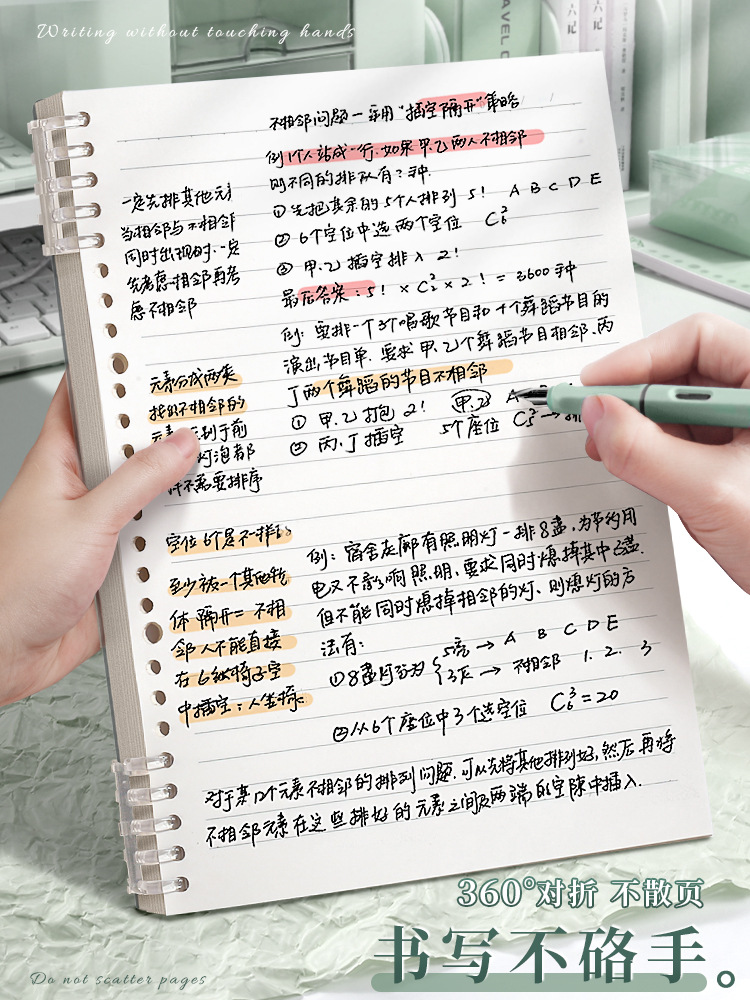 Writing without touching hands
不相邻问题一采用"插空隔开"策略
例 1个人站成一行.如果甲.乙两人不相邻
则不同的排队有?种.
①先把其余的5个人排列 5! A B C D E
②6个空位中选两个空位 C₆²
③甲.乙插空排入 2!
最后答案:5!×C₆²×2!=3600种
一定先排其他元素
当相邻与不相邻
同时出现时.一定
先考虑相邻再考
虑不相邻
例:要排一个3个唱歌节目和4个舞蹈节目的
演出节目单.要求甲.乙2个舞蹈节目相邻.丙
丁两个舞蹈的节目不相邻
①甲.乙打包 2! 甲.乙 A
②丙.丁插空 5个座位 C₅² →
元素分成两类
找出不相邻的
灯泡都
不需要排序
例:宿舍走廊有照明灯一排8盏,为节约用
电又不影响照明,要求同时熄掉其中3盏.
但不能同时熄掉相邻的灯、则熄灯的方
法有:
①8盏灯分为 5亮 → A B C D E
3灭 → 不相邻 1. 2. 3
②从6个座位中3个选空位 C₆³=20
空位6个是不一样的
至少被一个其他物
体隔开=不相
邻人不能直接
在6张椅子空
中插空:人坐椅
对于某几个元素不相邻的排列问题.可以先将其他排列好,然后再将
不相邻元素在这些排好的元素之间及两端的空隙中插入.
360°对折 不散页
书写不硌手。
Do not scatter pages